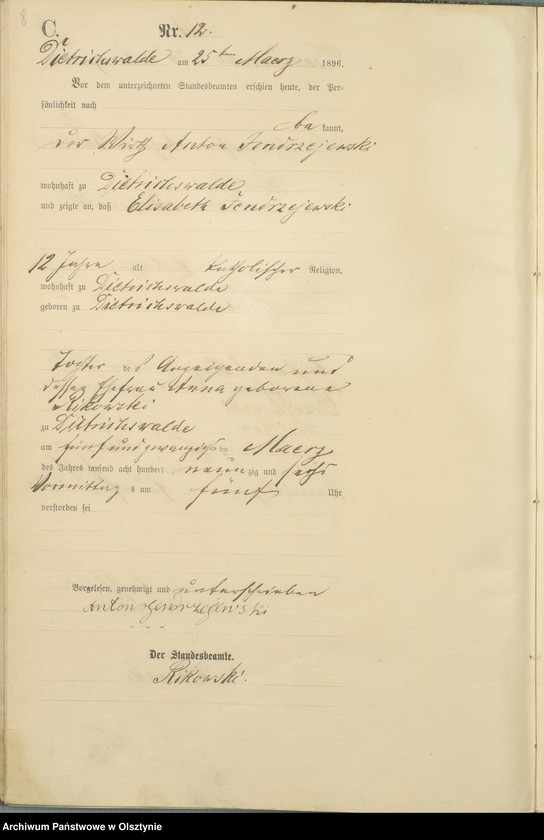 8
C.
Nr. 12.
Dietrichswalde am 25ten Maerz 1896.
Vor dem unterzeichneten Standesbeamten erschien heute, der Per-
sönlichkeit nach
be kannt,
der Wirth Anton Jendrzejewski
wohnhaft zu Dietrichswalde
und zeigte an, daß Elisabeth Jendrzejewski
12 Jahre alt katholischer Religion,
wohnhaft zu Dietrichswalde
geboren zu Dietrichswalde
Tochter des Anzeigenden und
dessen Ehefrau Anna geborene
Rikowski
zu Dietrichswalde
am fünfundzwanzigsten Maerz
des Jahres tausend acht hundert neun zig und sechs
Vormittag s um fünf Uhr
verstorben sei
Vorgelesen, genehmigt und unterschrieben
Anton Jendrzejewski
Der Standesbeamte.
Rikowski.
Archiwum Państwowe w Olsztynie